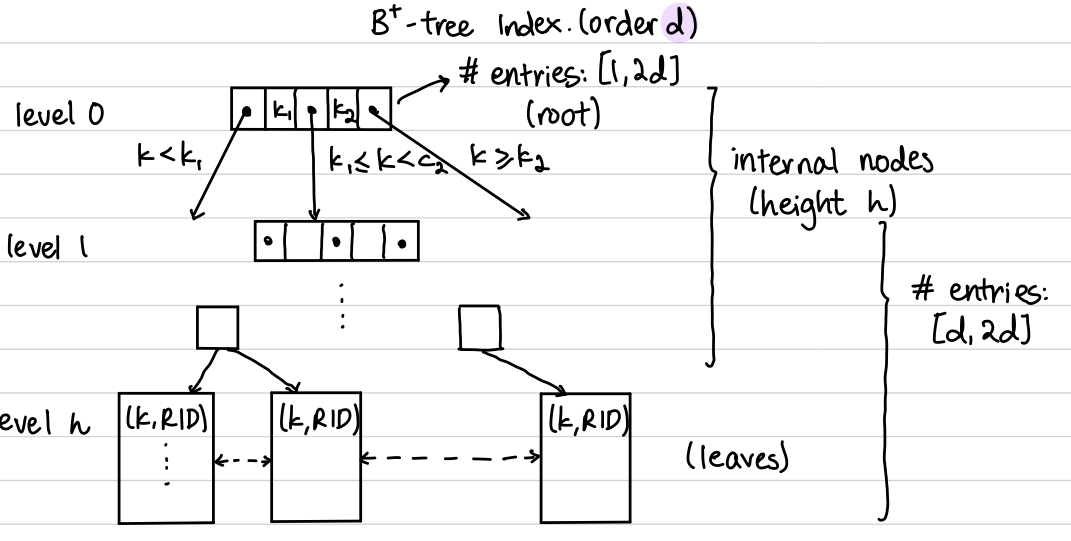 B⁺-tree Index. (order d)
# entries: [1,2d]
(root)
level 0
k₁
k₂
k<k₁
k₁≤k<c₂
k≥k₂
internal nodes
(height h)
level 1
# entries:
[d, 2d]
evel h
(k,RID)
(k,RID)
(k,RID)
(leaves)